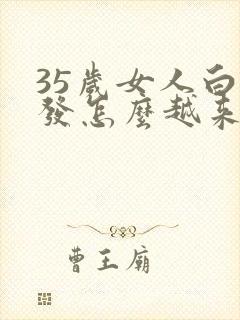 35歲女人白
發怎麼越來
曹王廟